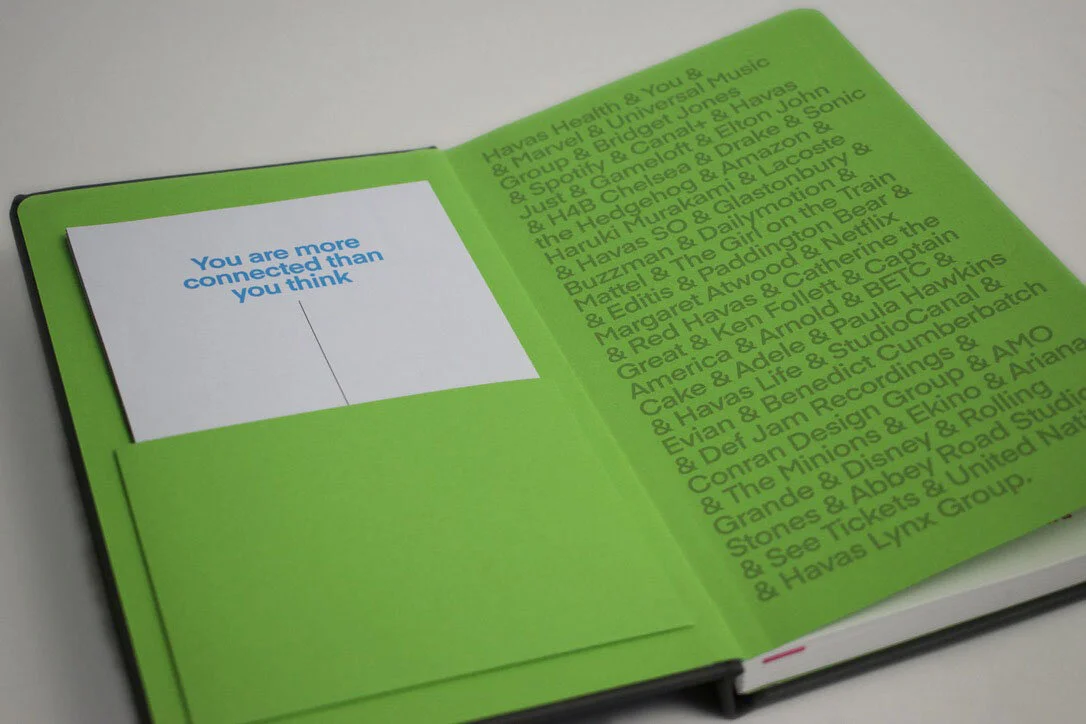 You are more
connected than
you think
Havas Health & You &
& Marvel & Universal Music
Group & Bridget Jones
& Spotify & Canal+ & Havas
Just & Gameloft & Elton John
& H4B Chelsea & Drake & Sonic
the Hedgehog & Amazon &
Haruki Murakami & Lacoste
& Havas SO & Glastonbury &
Buzzman & Dailymotion &
Mattel & The Girl on the Train
& Editis & Paddington Bear &
Margaret Atwood & Netflix
& Red Havas & Catherine the
Great & Ken Follett & Captain
America & Arnold & BETC &
Cake & Adele & Paula Hawkins
& Havas Life & StudioCanal &
Evian & Benedict Cumberbatch
& Def Jam Recordings &
Conran Design Group & AMO
& The Minions & Ekino & Ariana
Grande & Disney & Rolling
Stones & Abbey Road Studio
& See Tickets & United Nati
& Havas Lynx Group.